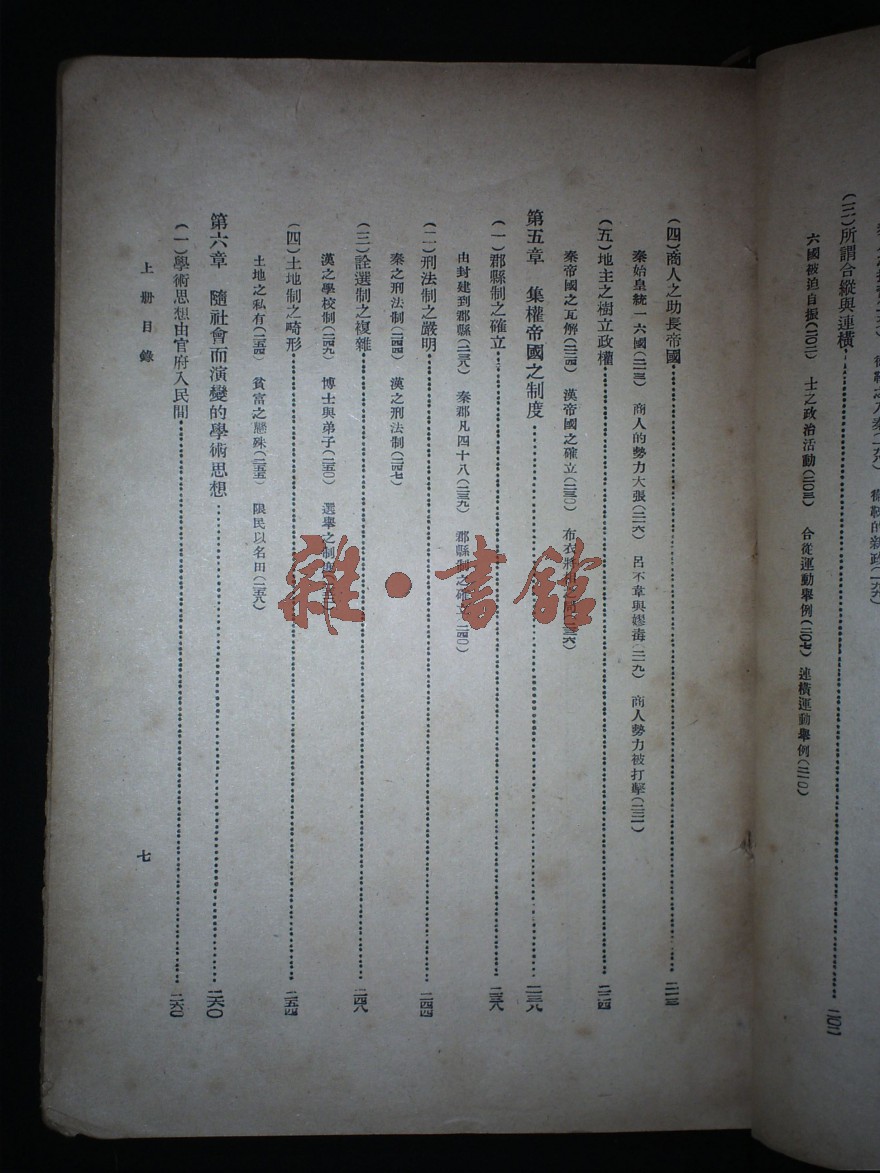 (三)所謂合縱與連橫……二〇二
六國被迫自振(二〇二) 士之政治活動(二〇三) 合從運動舉例(二〇七) 連橫運動舉例(二一〇)
(四)商人之助長帝國……二一三
秦始皇統一六國(二一三) 商人的勢力大張(二一六) 呂不韋與嫪毐(二一九) 商人勢力被打擊(二二一)
(五)地主之樹立政權……二二四
秦帝國之瓦解(二二四) 漢帝國之確立(二三〇) 布衣將相之局(二三六)
第五章 集權帝國之制度……二三八
(一)郡縣制之確立……二三八
由封建到郡縣(二三八) 秦郡凡四十八(二三九) 郡縣制之確立(二四〇)
(二)刑法制之嚴明……二四四
秦之刑法制(二四四) 漢之刑法制(二四七)
(三)詮選制之複雜……二四八
漢之學校制(二四九) 博士與弟子(二五〇) 選舉之制度
(四)土地制之畸形……二五四
土地之私有(二五四) 貧富之懸殊(二五五) 限民以名田(二五八)
第六章 隨社會而演變的學術思想……二六〇
(一)學術思想由官府入民間……二六〇
上册目錄
七
雜·書館